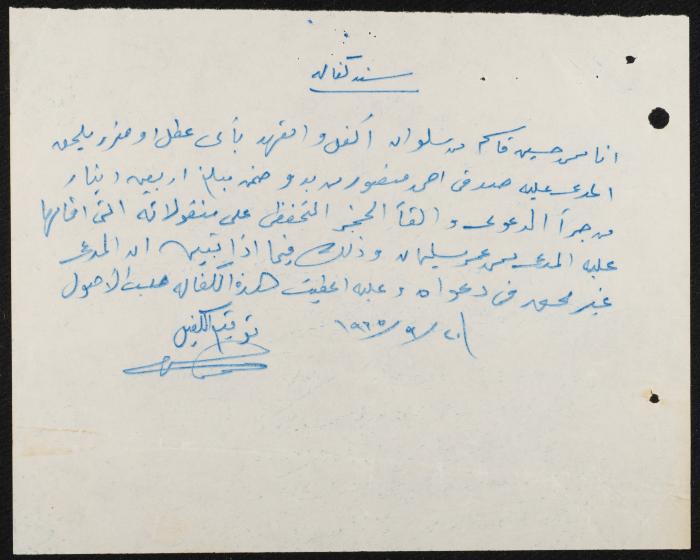 سند كفاله
انا حسين قاسم من سلوان اكفل واتعهد بأى عطل او ضرر يلحق
المدعى عليه صدقي احمد منصور من بدو ضمن مبلغ اربعين دينار
من جرأ الدعوى والقأ الحجز التحفظي على منقولاته التى اقامها
عليه المدعي عمر سليمان وذلك فيما اذا تبين ان المدعي
غير محق في دعواه وعليه اعطيت هذه الكفاله حسب الاصول
٢٠/٩/١٩٦٥
توقيع الكفيل